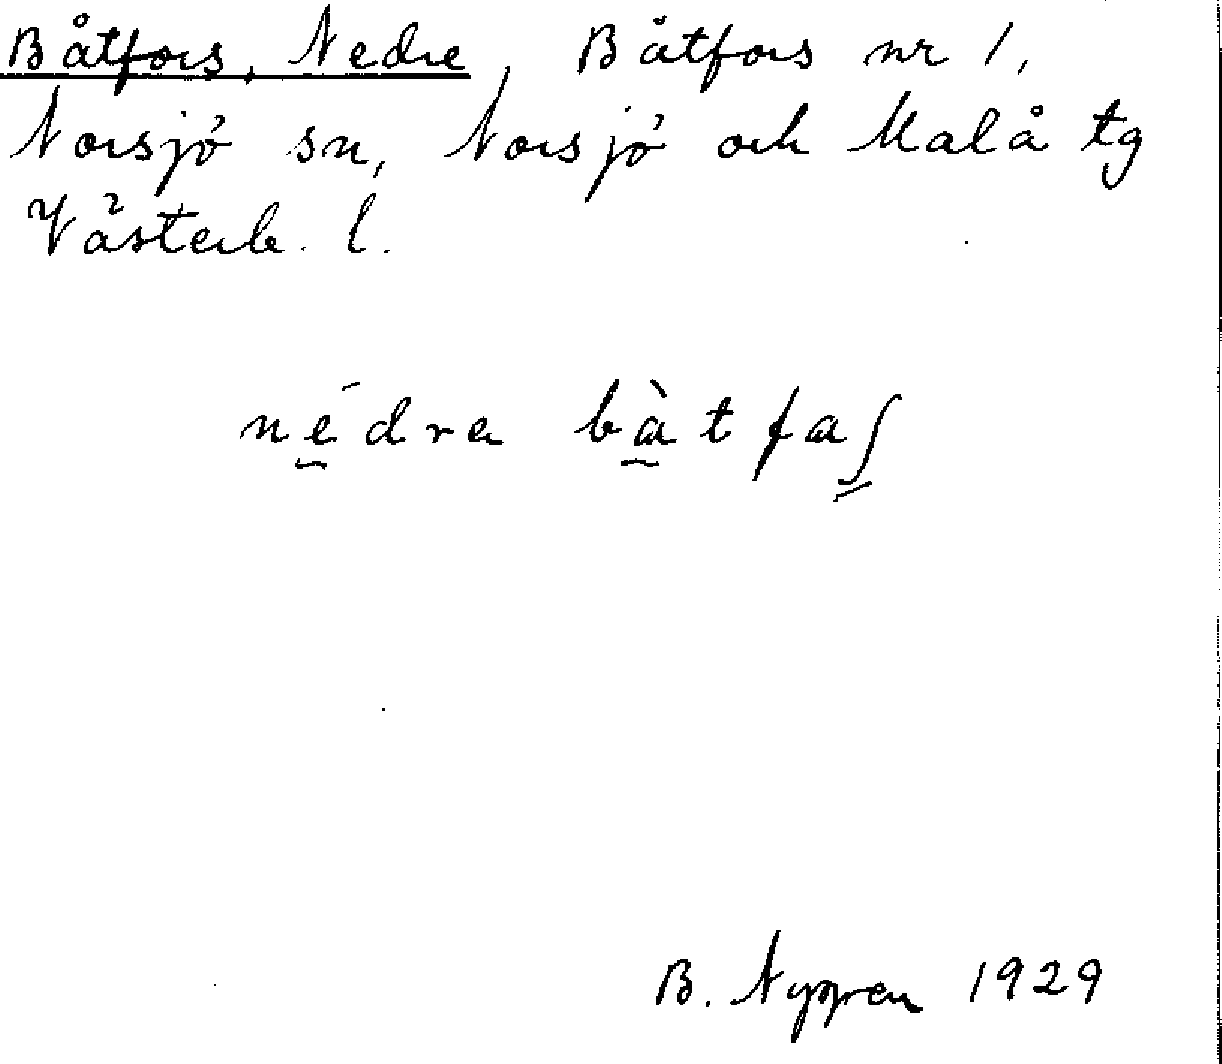 Båtfors, Nedre, Båtfors nr 1,
Norsjö sn, Norsjö och Malå tg
Västerb. l.
nédra bàtfaʂ
B. Nygren 1929